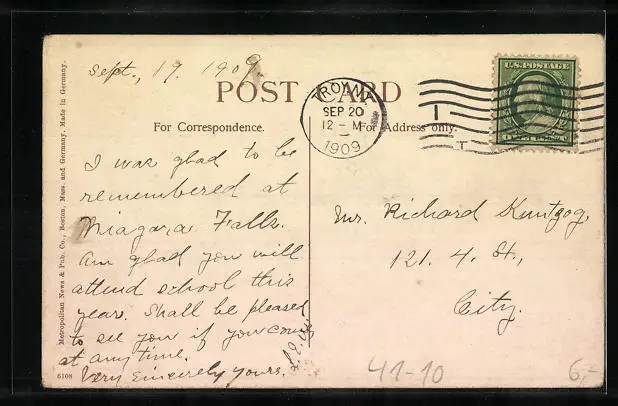 Sept., 19. 1909.
POST CARD
TROY, N.
SEP 20
12 - M
1909
U.S. POSTAGE
I
T
For Correspondence.
For Address only.
I was glad to be
remembered at
Niagara Falls.
Am glad you will
attend school this
year. Shall be pleased
to see you if you come
at any time.
Very Sincerely yours.
Mr. Richard
121. 4. St.,
City.
Metropolitan News & Pub. Co., Boston, Mass. and Germany. Made in Germany.
6108
41-10
6,-